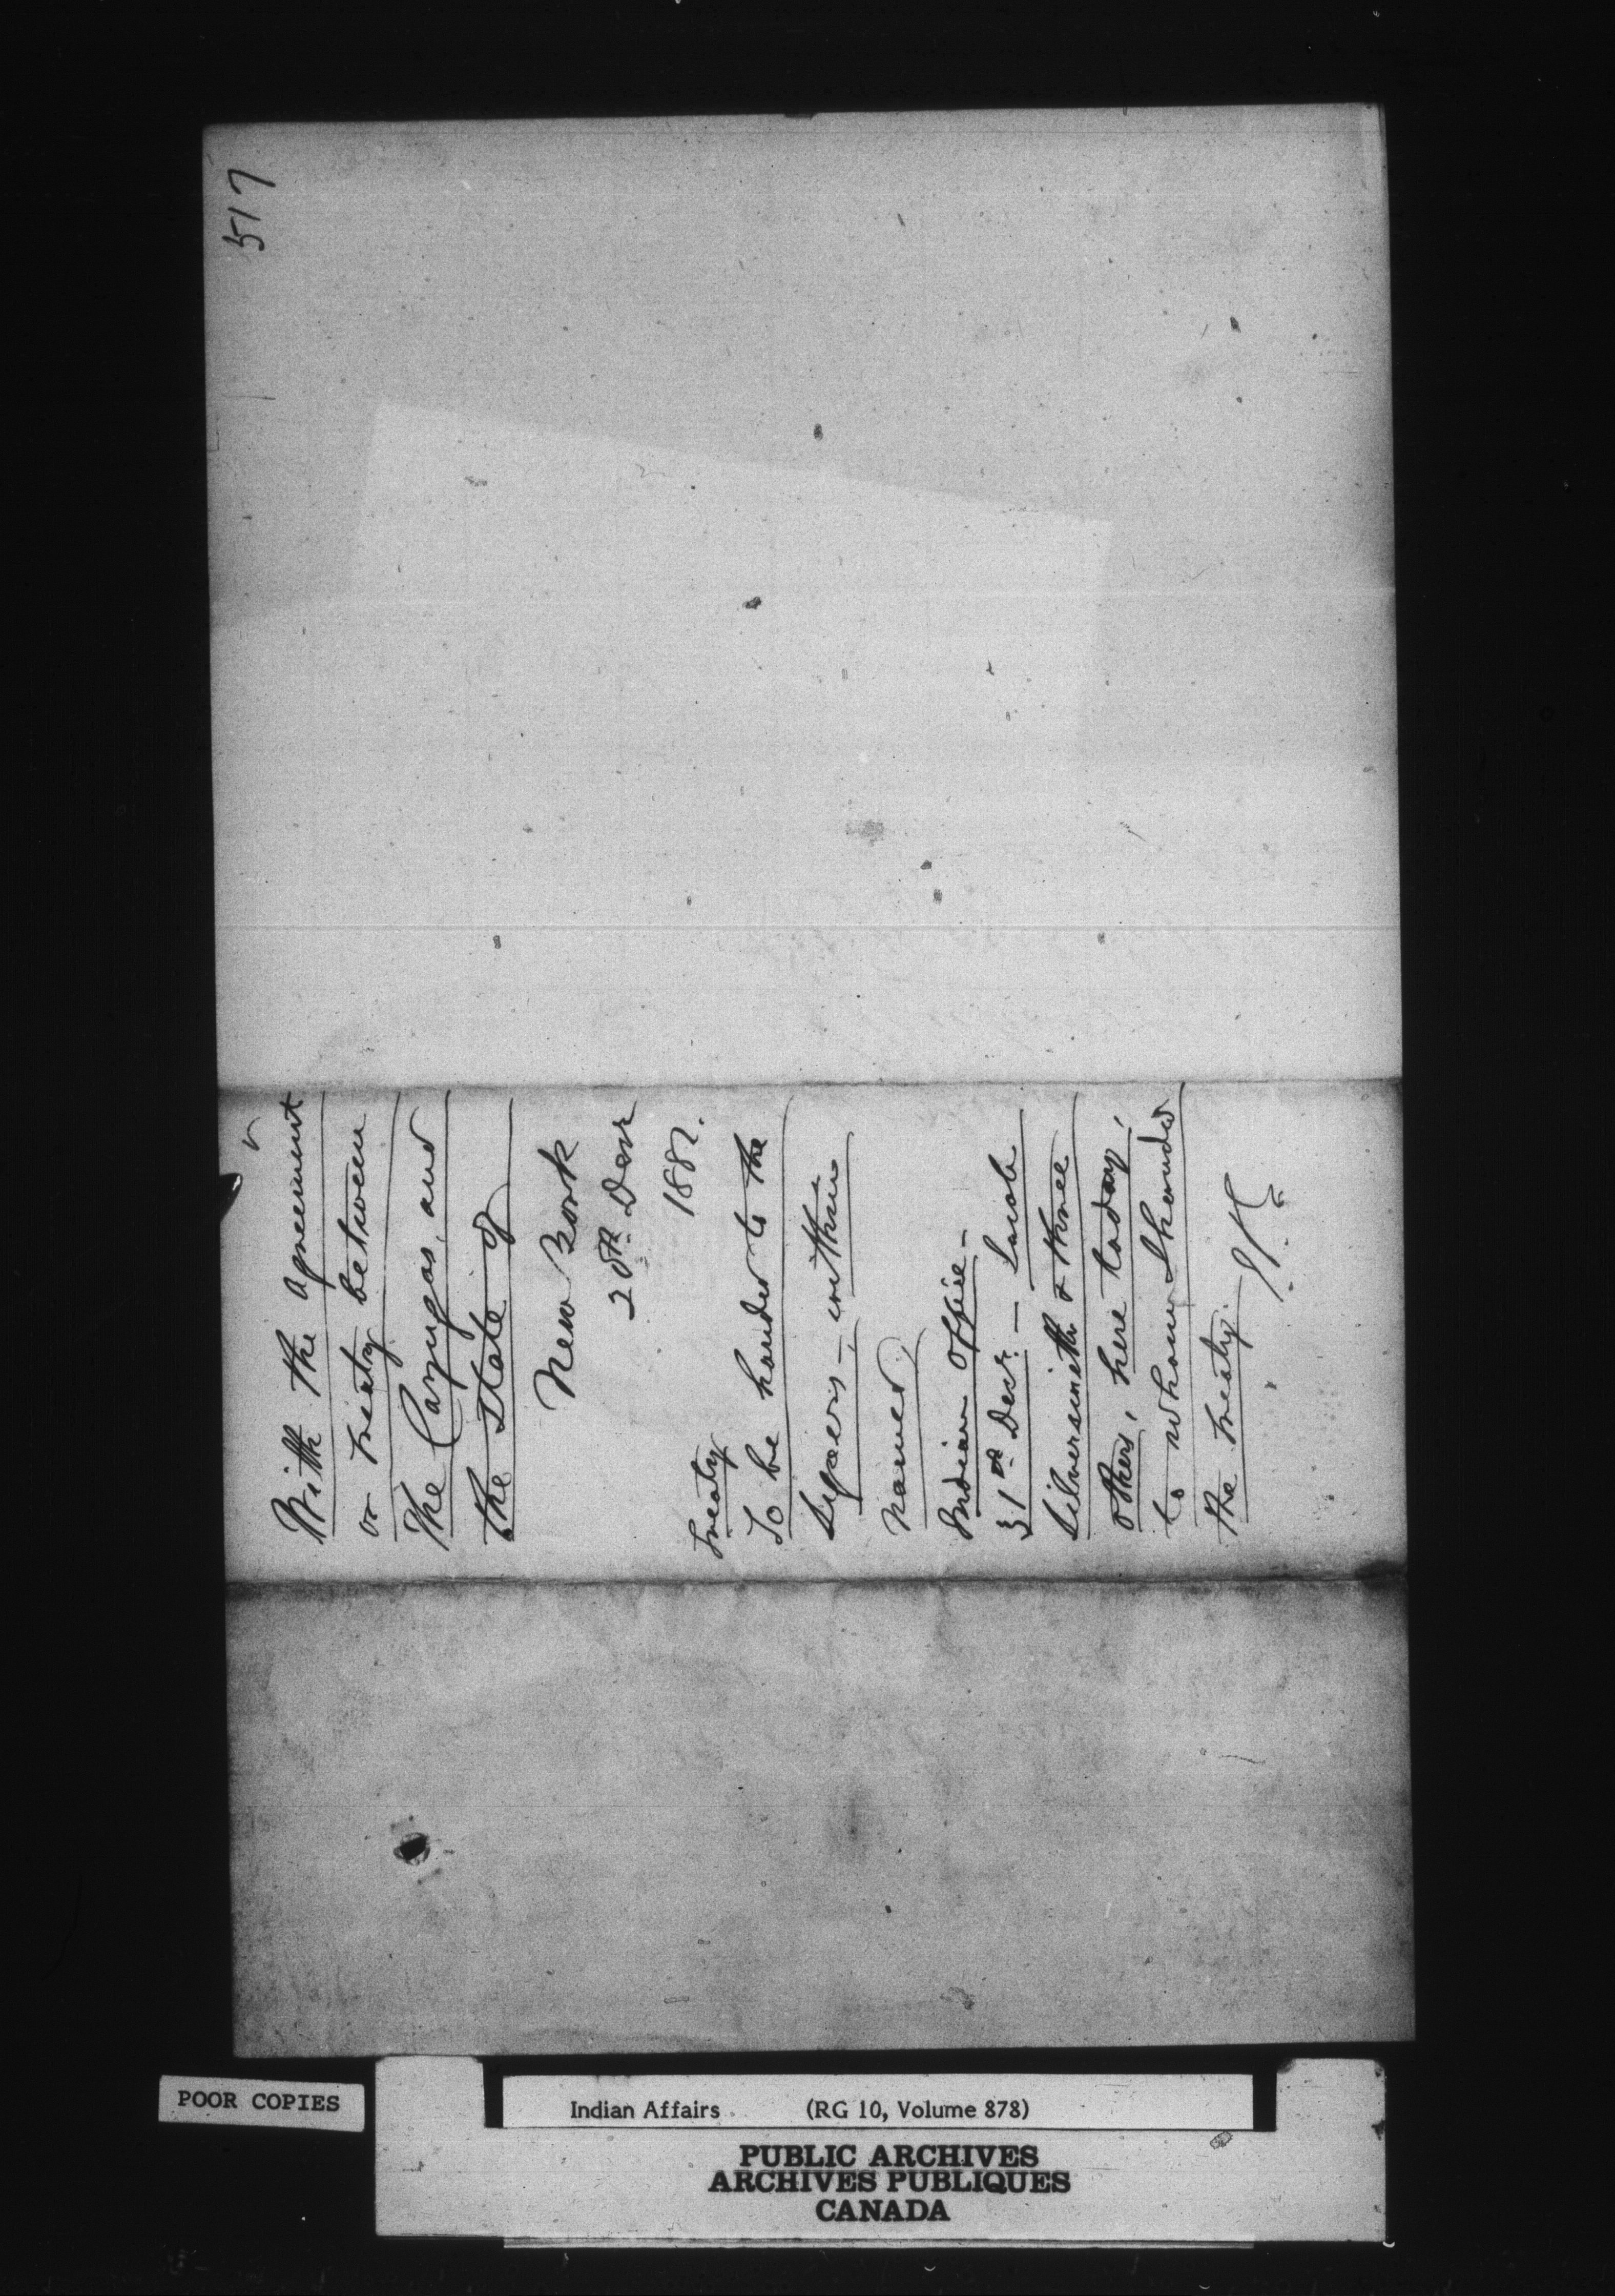 517
With the agreement
or treaty between
The Cayugas, and
the State of
New York
20th Decr
1887.
Treaty
To be handed to the
Signers - within
named
Indian Office -
31st Decr. - Jacob
Silversmith & three
others, here today,
to whom I handed
the treaty.
POOR COPIES
Indian Affairs (RG 10, Volume 878)
PUBLIC ARCHIVES
ARCHIVES PUBLIQUES
CANADA